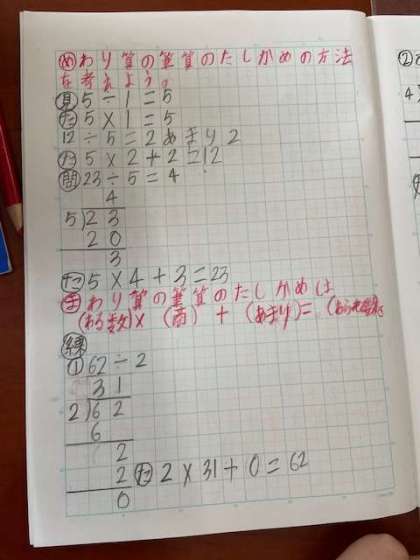 めわり算の筆算のたしかめの方法
を考えよう。
見5÷1=5
た5×1=5
12÷5=2あまり2
た5×2+2=12
問23÷5=4
4
5)23
20
3
た5×4+3=23
まわり算の筆算のたしかめは
(わる数)×(商)+(あまり)=(わられる数)
練
①62÷2
31
2)62
6
2
2 た2×31+0=62
0
②
4